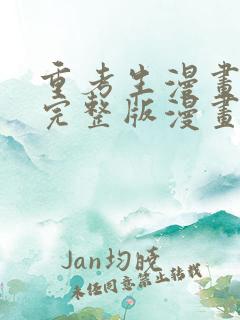 重考生漫畫
完整版漫畫
Jan均曉
未任同意禁止转载